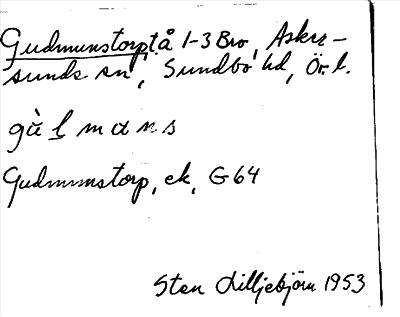 Gudmunstorp, tå 1-3 Bro, Asker-
sunds sn, Sundbo hd, Ör. l.
gù l m a n s
Gudmunstorp, ek, G64
Sten Lilljebjörn 1953